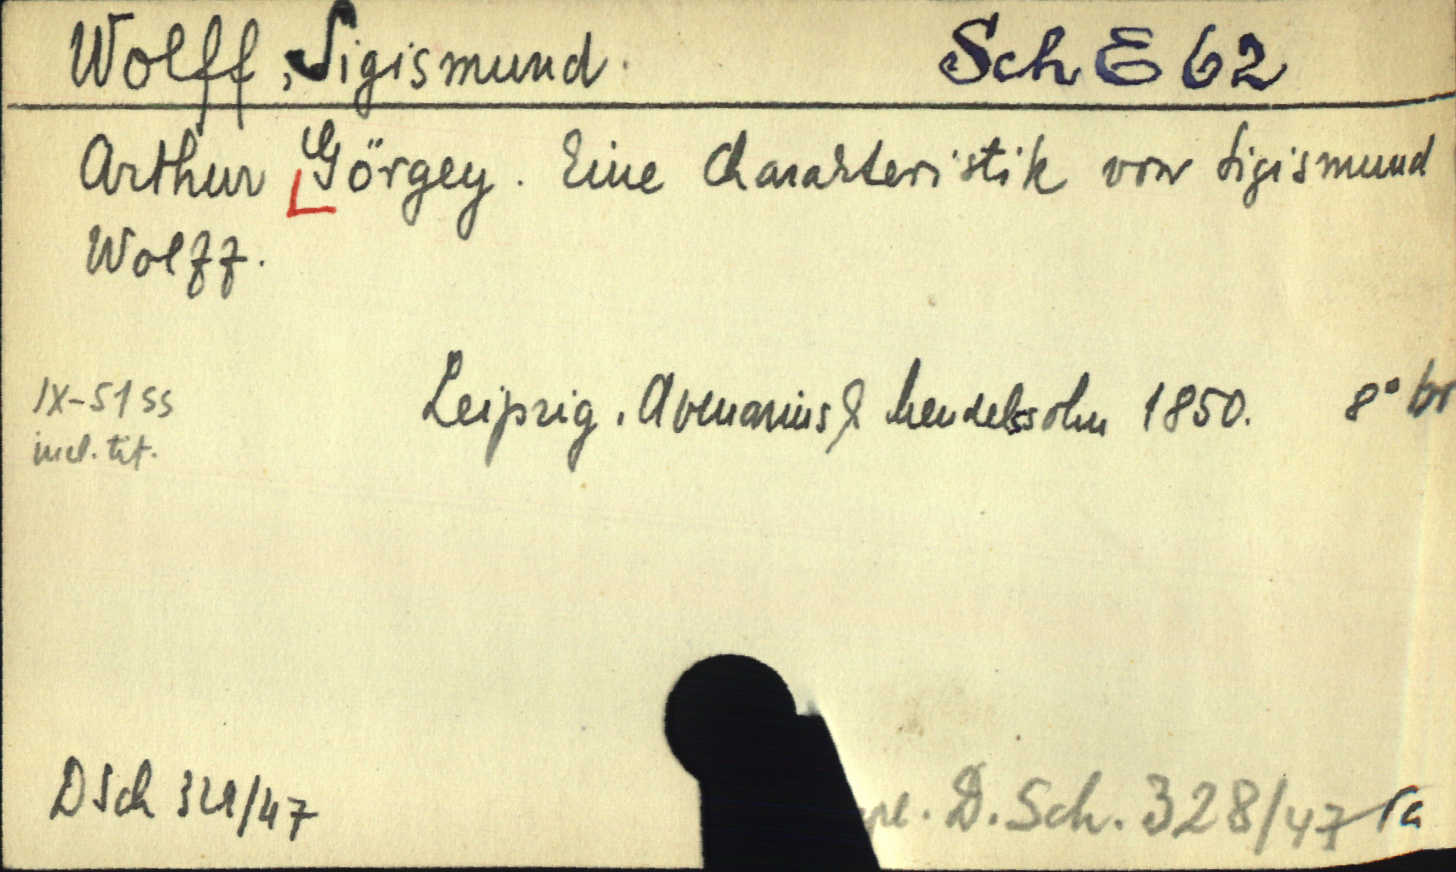 Wolff, Sigismund. Sch E 62
Arthur Görgey. Eine Charakteristik von Sigismund
Wolff.
IX-51 ss Leipzig. Avenarius & Mendelssohn 1850. 8° br
incl. tit.
DSch 328/47 pl. D. Sch. 328/47